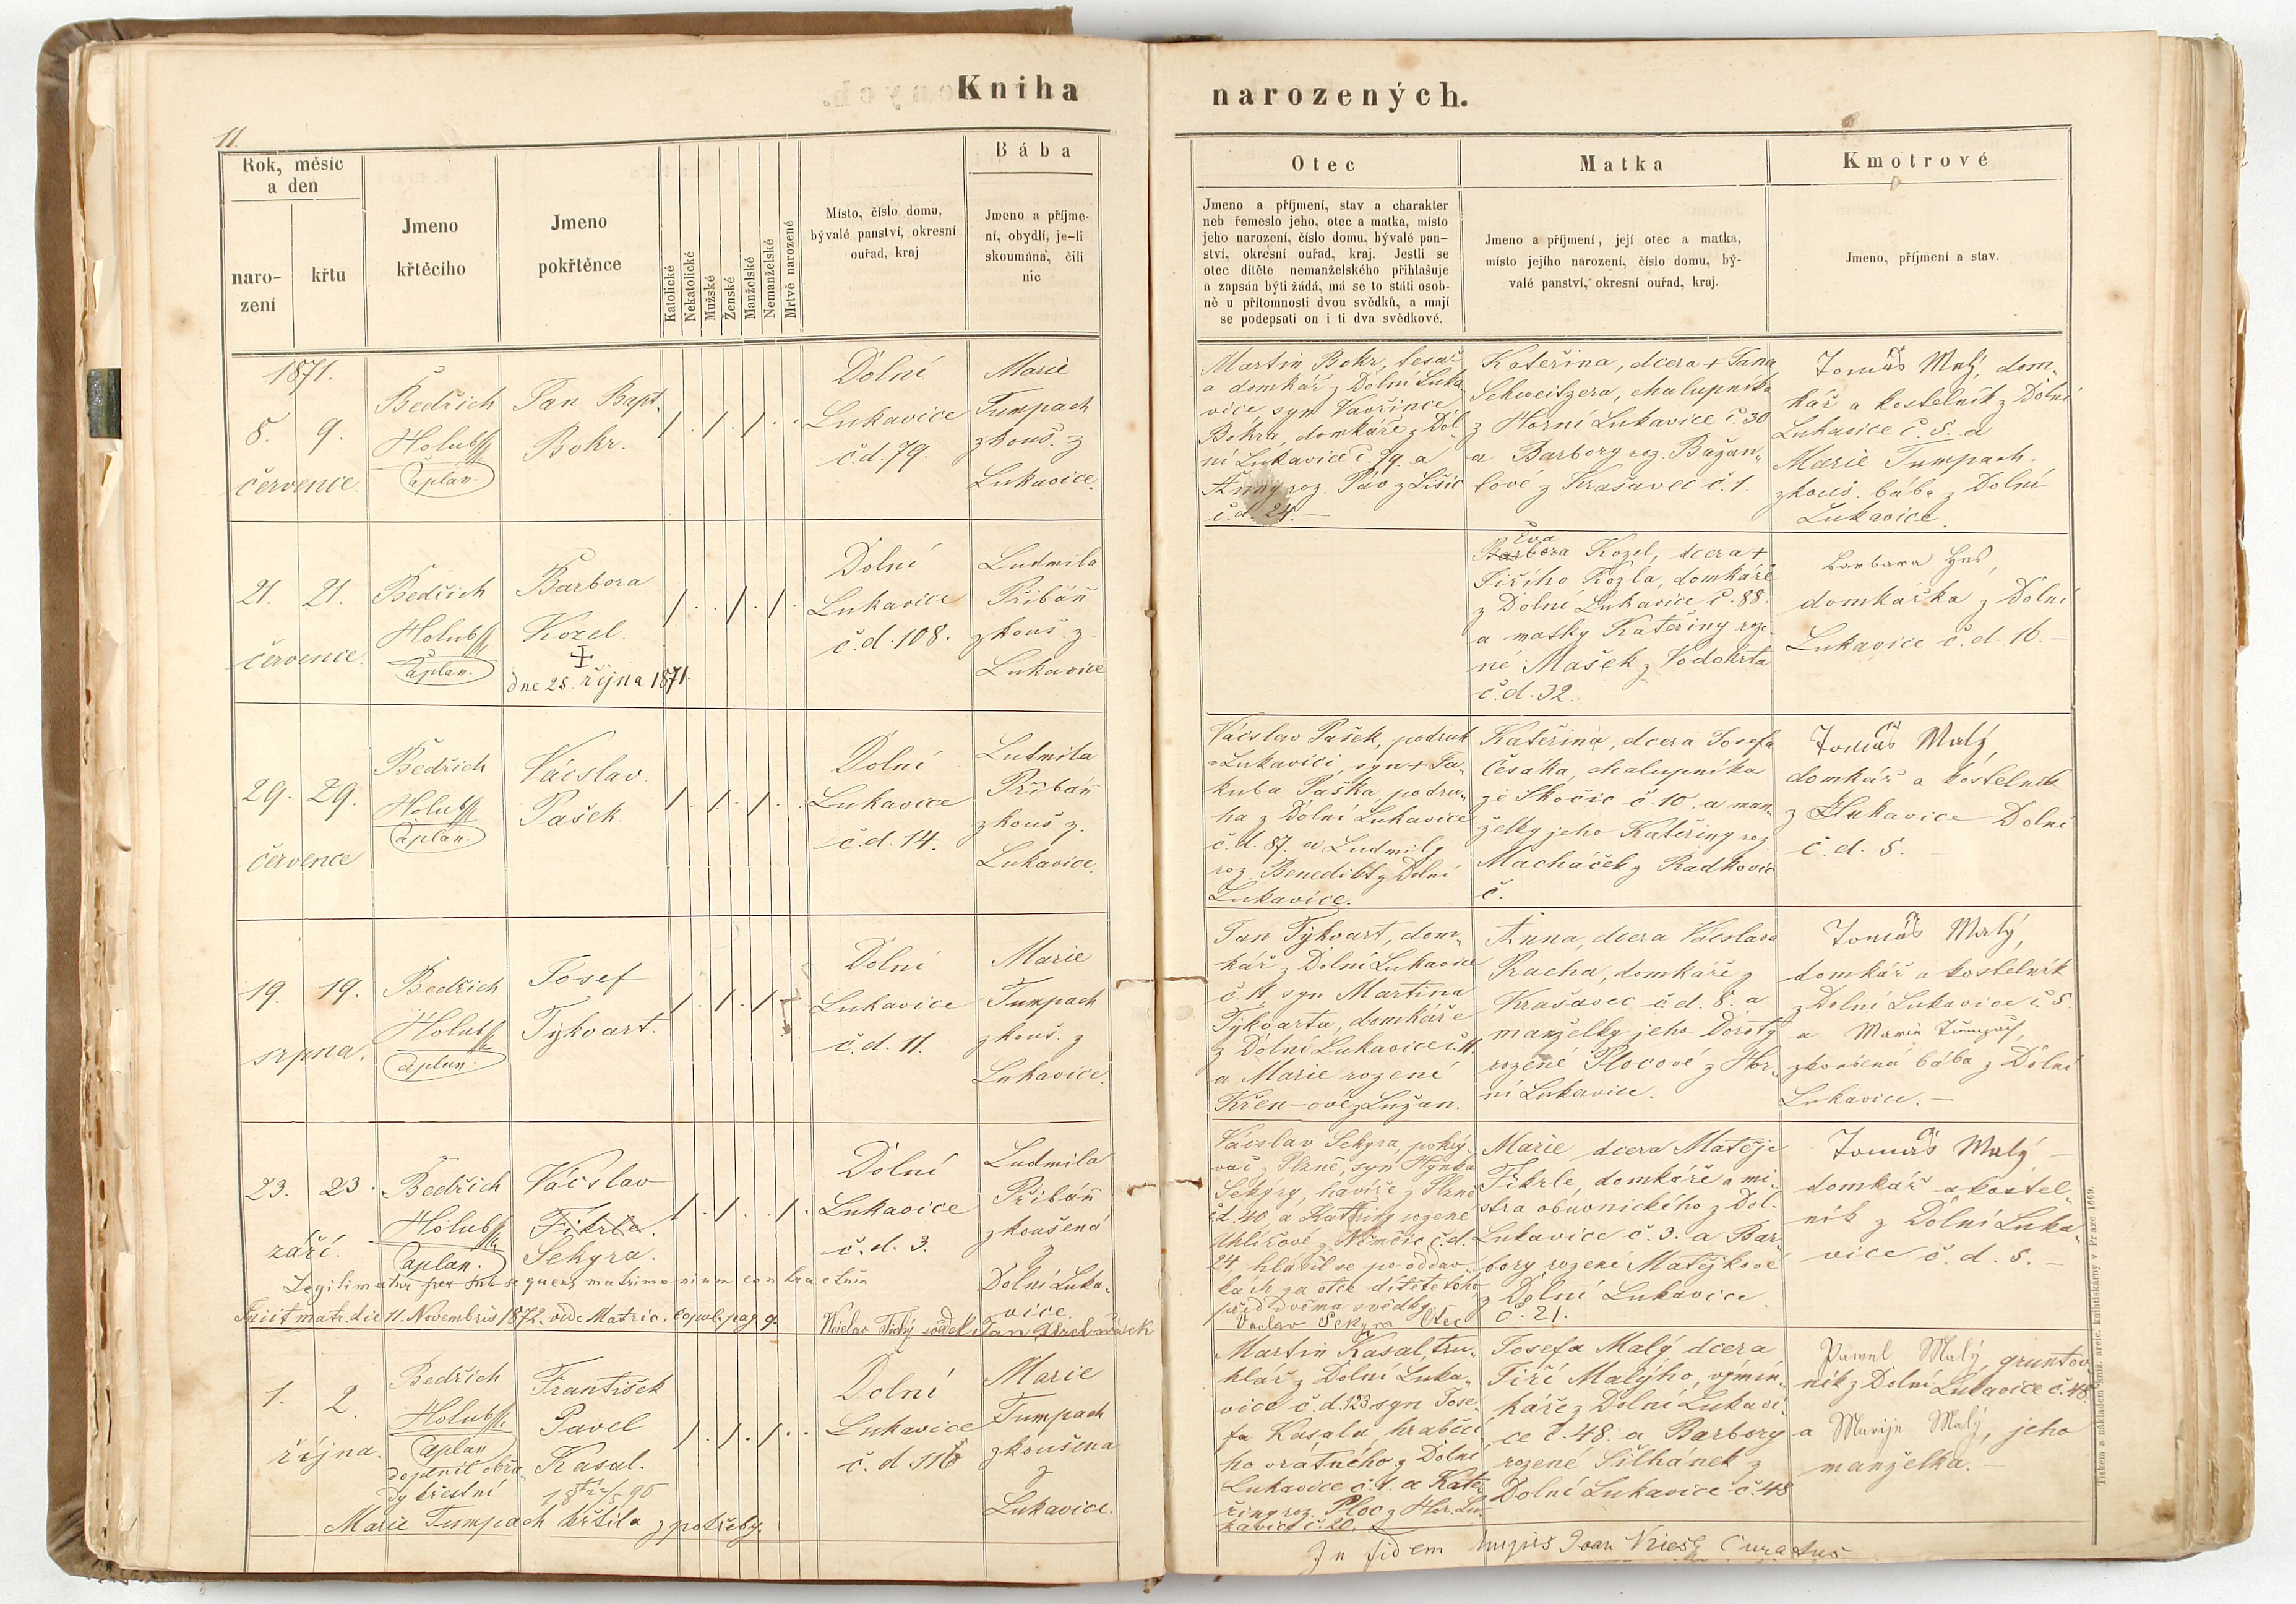 Kniha
narozených.
11
Rok, měsíc
a den
naro-
zení
křtu
Jmeno
křtěcího
Jmeno
pokřtěnce
Katolické
Nekatolické
Mužské
Ženské
Manželské
Nemanželské
Mrtvě narozené
Místo, číslo domu,
bývalé panství, okresní
ouřad, kraj
Bába
Jmeno a příjme-
ní, obydlí, je-li
skoumána, čili
nic
Otec
Jmeno a příjmení, stav a charakter
neb řemeslo jeho, otec a matka, místo
jeho narození, číslo domu, bývalé pan-
ství, okresní ouřad, kraj. Jestli se
otec dítěte nemanželského přihlašuje
a zapsán býti žádá, má se to státi osob-
ně u přítomnosti dvou svědků, a mají
se podepsati on i ti dva svědkové.
Matka
Jmeno a příjmení, její otec a matka,
místo jejího narození, číslo domu, bý-
valé panství, okresní ouřad, kraj.
Kmotrové
Jmeno, příjmení a stav.
1871.
8. 9.
července.
Bedřich
Holub
Caplan.
Jan Bapt.
Bokr.
/ . / . / . .
Dolní
Lukavice
č.d. 79.
Marie
Tumpach
zkouš. z
Lukavice.
Martin Bokr, tesař
a domkář z Dolní Luka
vice syn Vavřince
Bokra, domkáře z Dol-
ní Lukavice č. 79. a
Anny roz. Páv z Lišic
č.d. 24. —
Kateřina, dcera + Jana
Schweitzera, chalupníka
z Horní Lukavice č. 30
a Barbory roz. Bažan-
tove z Krašavec č. 1.
Tomáš Malý, dom-
kář a kostelník z Dolní
Lukavice č. 5. a
Marie Tumpach.
zkouš. bába z Dolní
Lukavice.
21. 21.
července.
Bedřich
Holub
Caplan.
Barbora
Kozel.
+
dne 25. října 1871.
/ . . / . / .
Dolní
Lukavice
č.d. 108.
Ludmila
Přibáň
zkouš. z
Lukavice
Eva
Barbora Kozel, dcera +
Jiřího Kozla, domkáře
z Dolní Lukavice č. 88.
a matky Kateřiny roze-
né Mašek z Vodokrta
č.d. 32.
Barbara
domkářka z Dolní
Lukavice č.d. 16. —
29. 29.
července
Bedřich
Holub
Caplan.
Václav
Pašek.
/ . / . / . .
Dolní
Lukavice
č.d. 14.
Ludmila
Přibáň
zkouš z.
Lukavice.
Václav Pašek, podruh
v Lukavici, syn + Ja-
kuba Paška podru-
ha z Dolní Lukavice
č.d. 87. a Ludmily
roz. Benedikt z Dolní
Lukavice.
Kateřina, dcera Josefa
Česáka, chalupníka
ze Skočic č. 10. a man-
želky jeho Kateřiny roz
Macháček z Radkovic
č.
Tomáš Malý,
domkář a kostelník
z Lukavice Dolní
č.d. 5.
19. 19.
srpna.
Bedřich
Holub
Caplan.
Josef
Tykvart.
/ . / . /
Dolní
Lukavice
č.d. 11.
Marie
Tumpach
zkouš. z
Lukavice.
Jan Tykvart, dom-
kář z Dolní Lukavice
č. 11, syn Martina
Tykvarta, domkáře
z Dolní Lukavice č. 11.
a Marie rozené
Křen-ové z Lužan.
Anna, dcera Václava
Pracha, domkáře z
Krašavec č.d. 8. a
manželky jeho Doroty
rozené Plocové z Hor-
ní Lukavice.
Tomáš Malý,
domkář a kostelník
z Dolní Lukavice č. 5.
a Marie Tumpach,
zkoušená bába z Dolní
Lukavice. —
23. 23.
září.
Bedřich
Holub
Caplan.
Václav
Fikrle.
Sekyra.
/ . / . . / .
Dolní
Lukavice
č.d. 3.
Ludmila
Přibáň
zkoušená
z
Dolní Luka-
vice.
Legitimatur per subsequens matrimonium contractum
Fuit matr. die 11. Novembris 1872. vide Matric. copul. pag. 9.
Václav Tichý svědek Jan svědek
Václav Sekyra, pokrý-
vač z Plzně, syn Hynka
Sekyry, havíře z Plzně
č.d. 40 a Kateřiny rozené
Uhlířové z Němčic č.d.
24 hlásil se po oddav-
kách za otce dítěte toho
před dvěma svědky
Václav Sekyra Otec
Marie dcera Matěje
Fikrle, domkáře a mi-
stra obuvnického z Dol.
Lukavice č. 3. a Bar-
bory rozené Matějkové
z Dolní Lukavice
č. 21.
Tomáš Malý —
domkář a kostel-
ník z Dolní Luka-
vice č.d. 5. —
1. 2.
října.
Bedřich
Holub
Caplan
doplnil obřa-
dy křestní
František
Pavel
Kasal.
/ . / . / . .
Dolní
Lukavice
č.d. 116
Marie
Tumpach
zkoušena
z
Lukavice.
Marie Tumpach křtila z potřeby.
Martin Kasal, tru-
hlář z Dolní Luka-
vice č.d. 123 syn Jose-
fa Kasala, hraběcí
ho vrátného z Dolní
Lukavice č. 1. a Kate-
řiny roz. Ploc z Hor. Lu-
kavice č. 20.
Josefa Malý dcera
Jiří Malýho, výmin-
káře z Dolní Lukavi-
ce č. 48. a Barbory
rozené Šilhánek z
Dolní Lukavice č. 48
Pawel Malý, gruntov-
ník z Dolní Lukavice č. 48.
a Marije Malý, jeho
manželka. —
In fidem hujus Joan Curatus
Tiskem a nákladem kníž. arcib. knihtiskárny v Praze 1669.